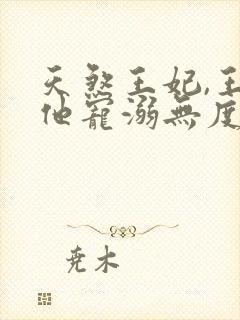 天煞王妃,王
他寵溺無度
尭木